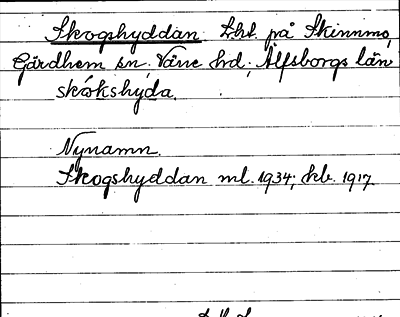 Skogshyddan Lht. på Skinnmo,
Gärdhem sn. Väne hd. Älfsborgs län
skókshyda.
Nynamn.
Skogshyddan ml. 1934; kb. 1917